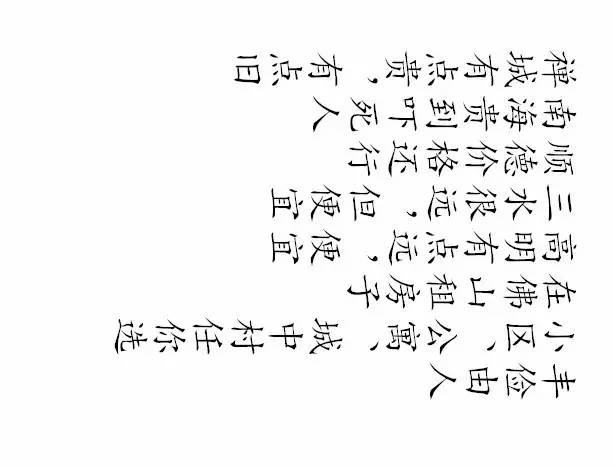 禅城有点贵，有点旧
南海贵到吓死人
顺德价格还行
三水很远，但便宜
高明有点远，便宜
在佛山租房子
小区、公寓、城中村任你选
丰俭由人